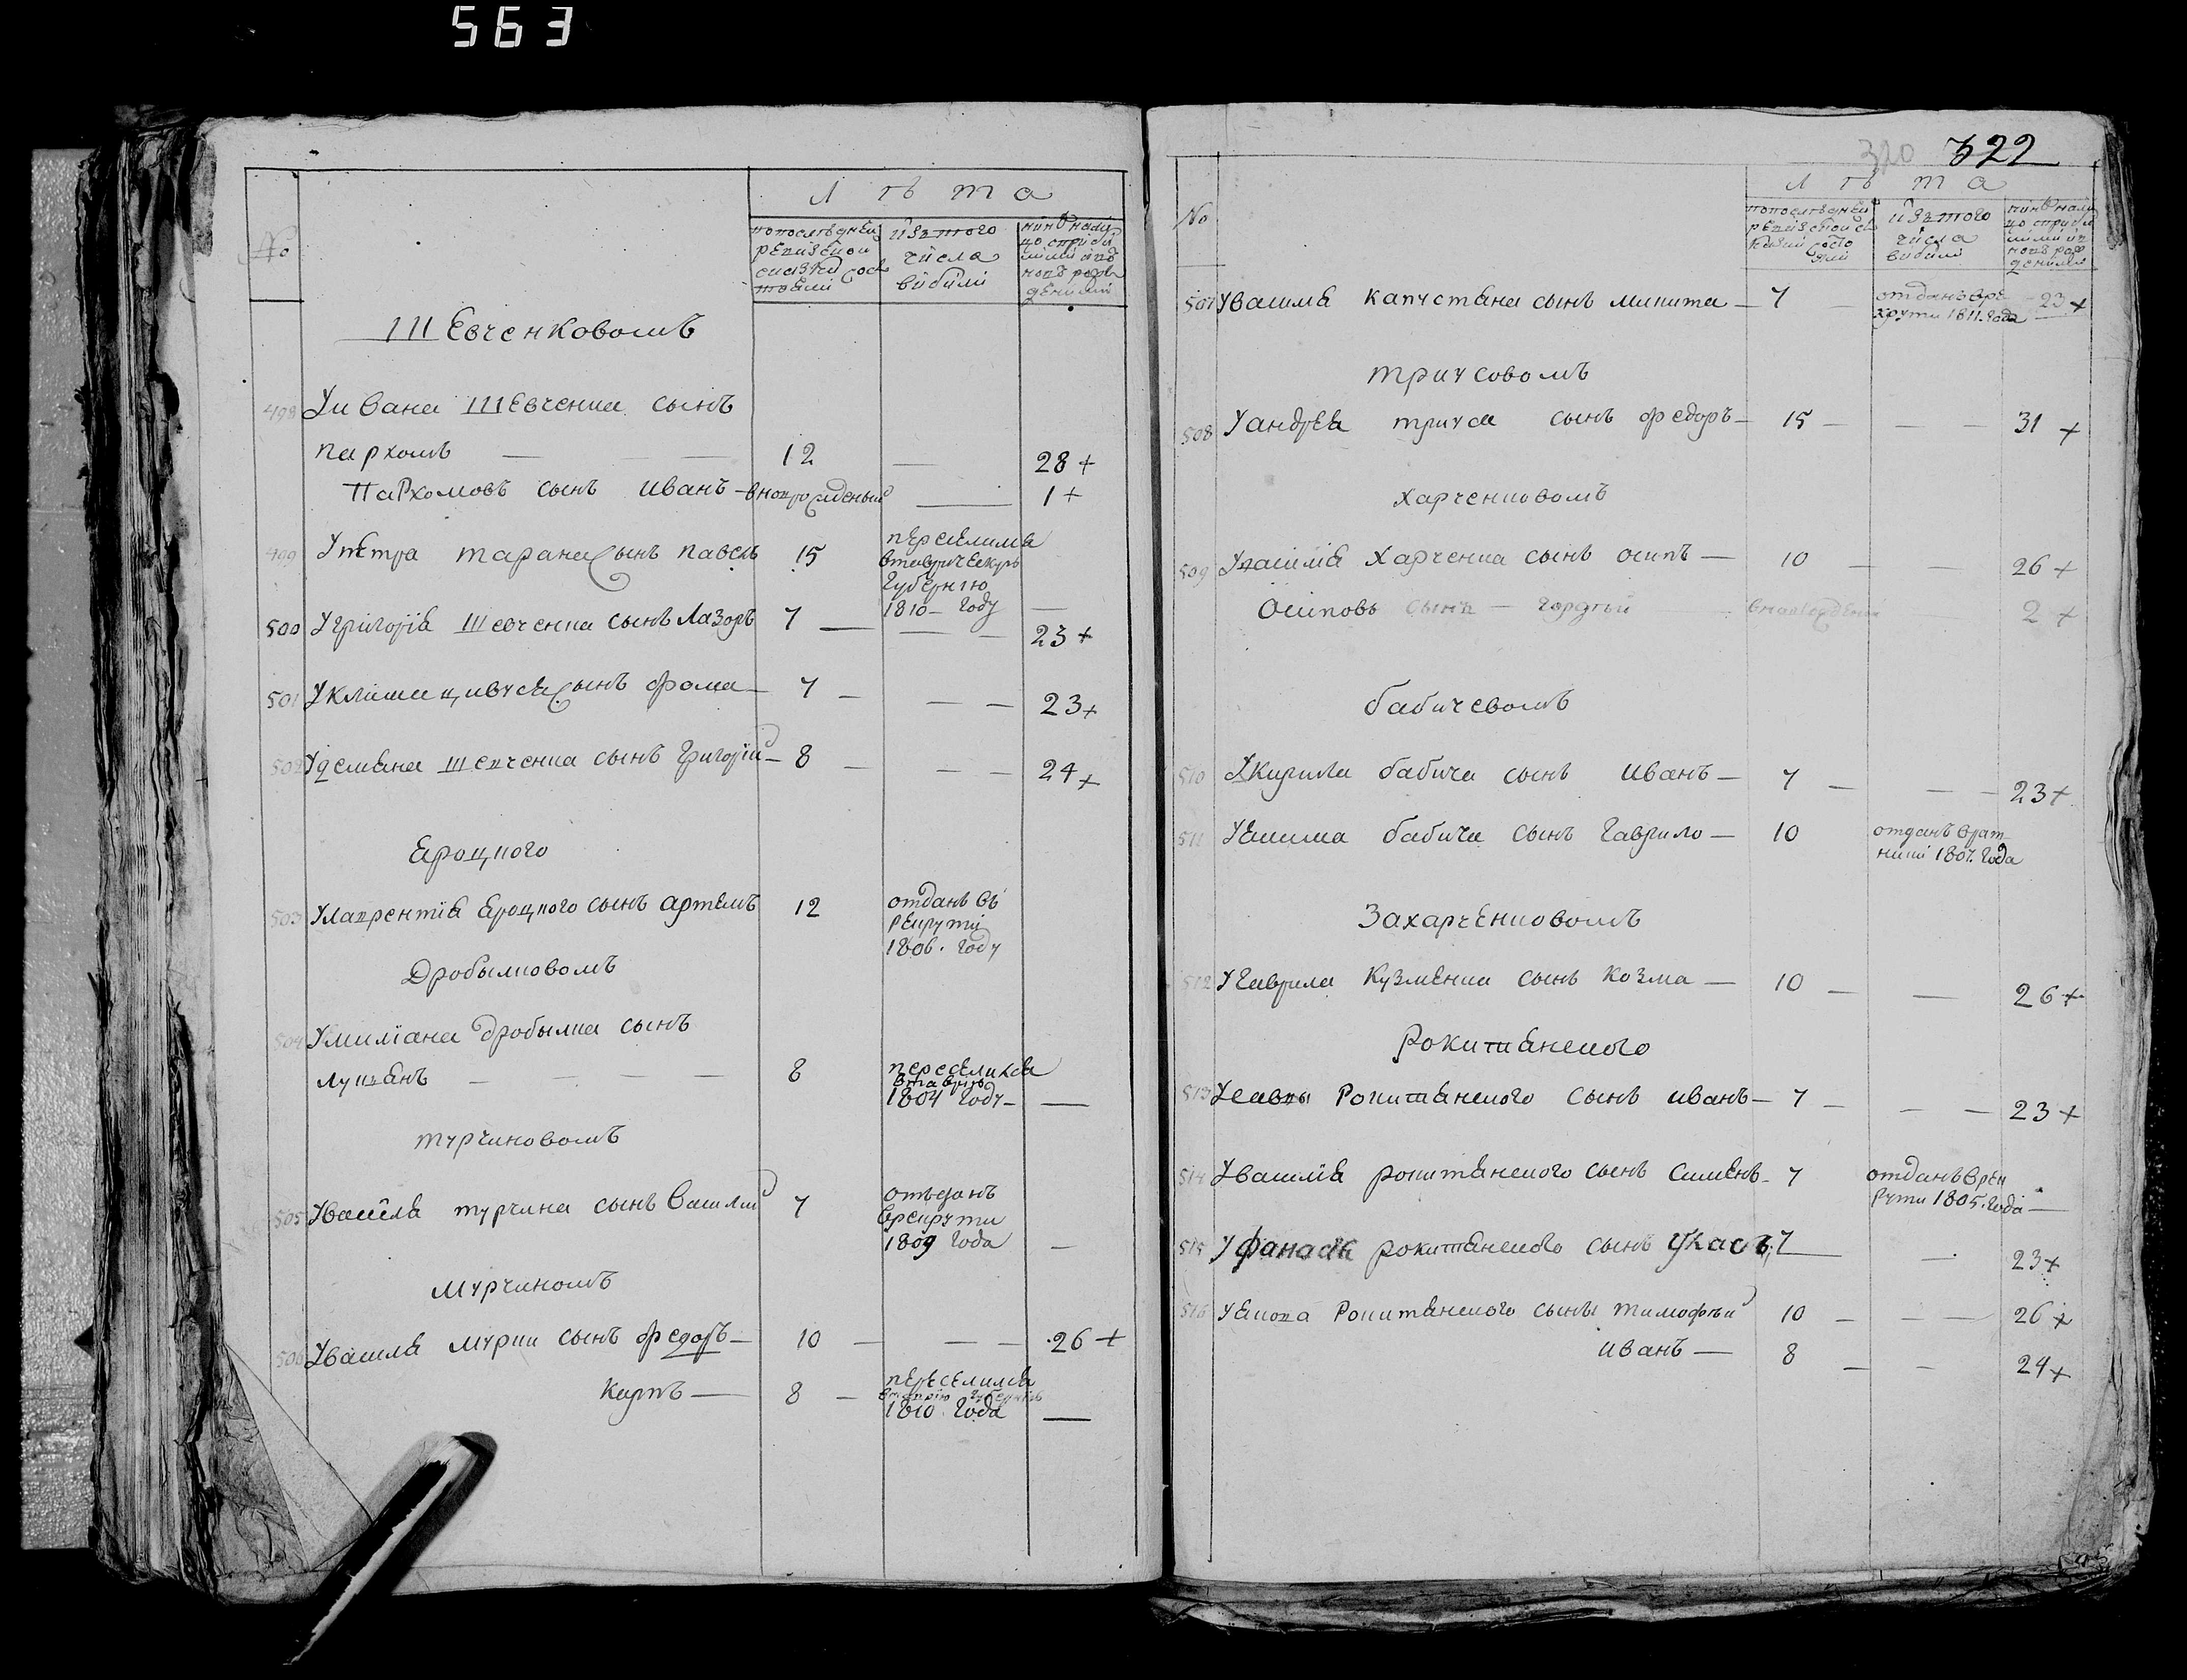 563
№
Лѣта
попоследней
ревизской
сказки сос
тояли
изъ того
числа
выбыли
ШЕвченковомъ
498 У ивана ШЕвченка сынъ
пархомъ — — — 12 — 28 +
Пархомовъ сынъ иванъ — вновърожденый — 1 +
499 У пЕтра тарана сынъ павелъ 15 переселился
втавричЕскую
Губернию
1810 – Году —
500 У григорія Шевченка сынъ Лазоръ 7 — — — 23 +
501 У клима цивуся сынъ фома — 7 — — — 23 +
502 У демяна Шевченка сынъ григорій — 8 — — — 24 +
Ероцкого
503 У лаврентія Ероцкого сынъ артемъ 12 отданъ въ
рекруты
1806. году
Дробылковомъ
504 У миліана дробылка сынъ
лукянъ — — — — 8 переселился
1804 Году — —
турчиновомъ
505 У василя турчина сынъ василий 7 отъданъ
врекруты
1809 года —
Мурчиномъ
506 У василя мурки сынъ федоръ — 10 — — — 26 +
Карпъ — 8 — переселился
1810. Года —
320 322
№
Лѣта
изъ того
числа
выбыли
507 У василя капустяна сынъ микита — 7 — отданъ вре
круты 1811. года 23 +
трикусовомъ
508 У андрея сынъ федоръ — 15 — — — 31 +
харченковомъ
509 У харченка сынъ осипъ — 10 — — 26 +
Осиповъ сынъ — гордѣй вноврожденый — 2 +
бабичевомъ
510 У кирила бабича сынъ иванъ — 7 — — — 23 +
511 У якима бабича сынъ гаврило — 10 отданъ врат
ники 1807. Года
ЗахарчЕнковомъ
512 У гаврила Кузменка сынъ козма — 10 — — 26 +
Рокитянского
513 У савы Рокитянского сынъ иванъ — 7 — — — 23 +
514 У василія рокитянского сынъ симЕнъ — 7 отданъ врек
руты 1805. года —
515 У фанасія рокитянского сынъ 7 — — 23 +
516 У якова Рокитянского сыны тимофѣй 10 — — — 26 +
иванъ — 8 — — 24 +